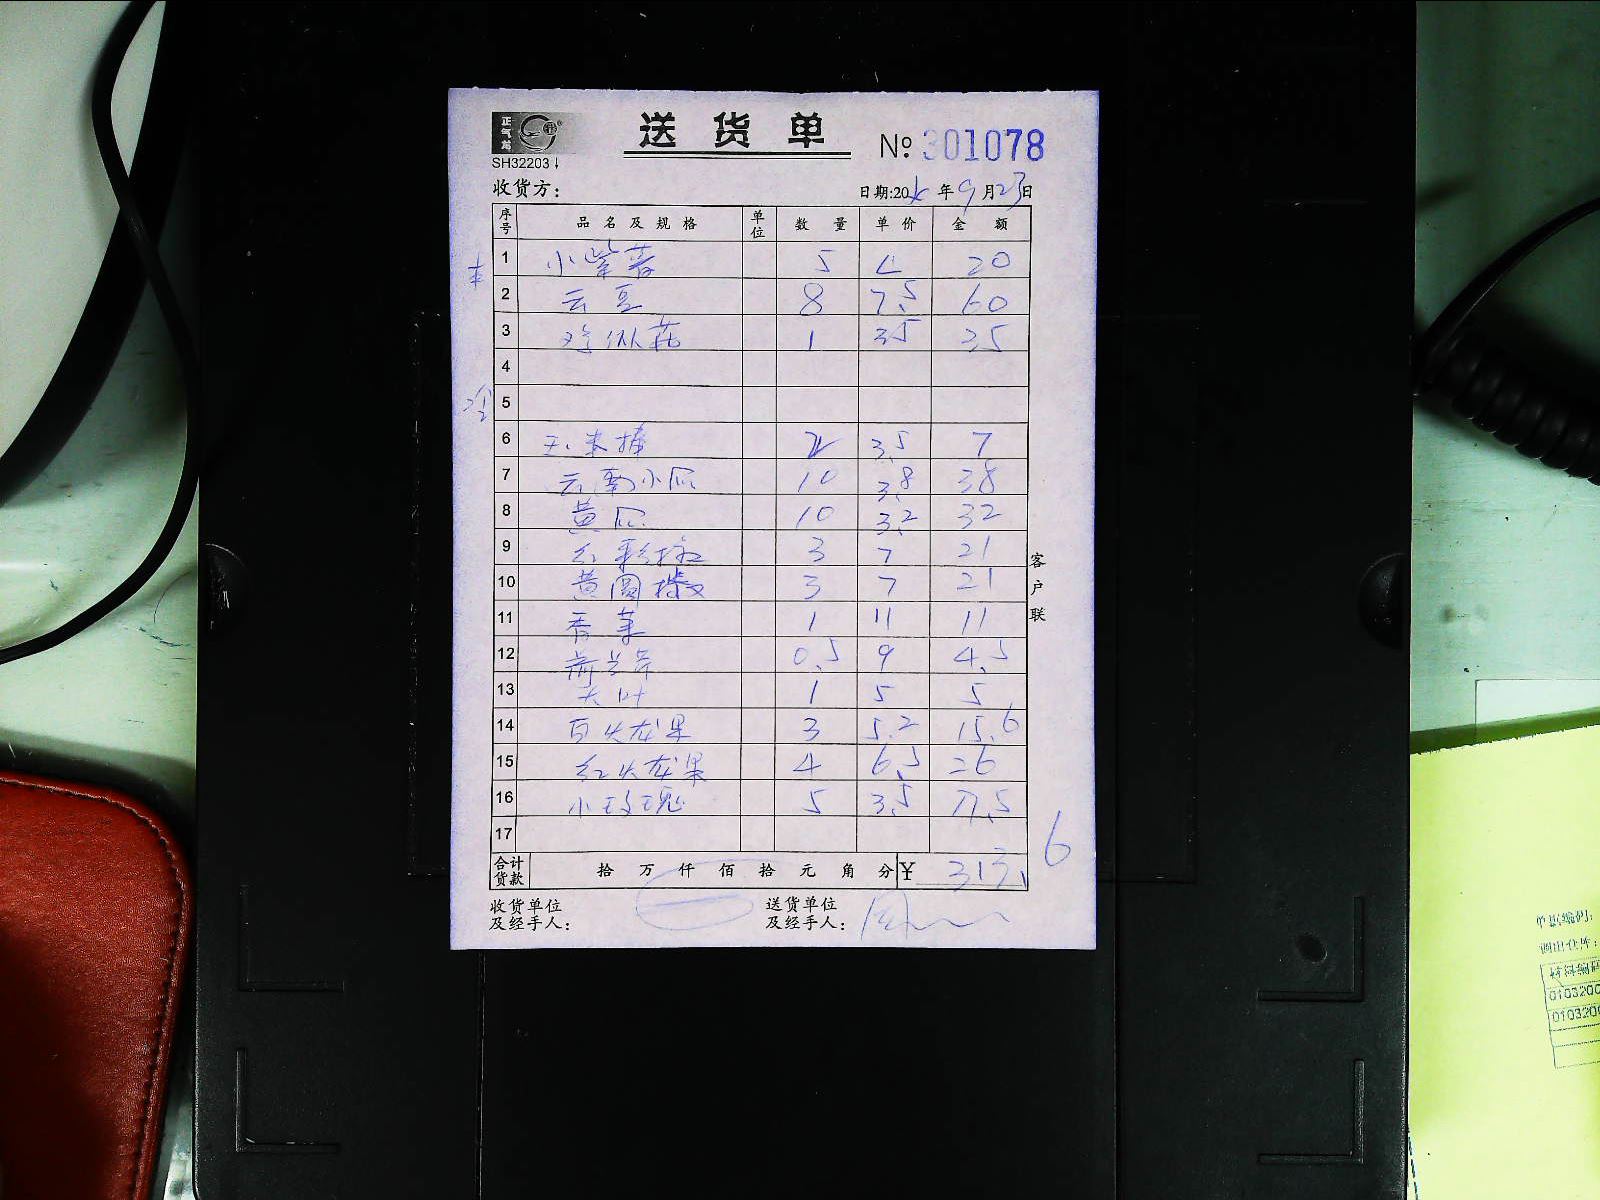 正气龙
SH32203↓
送货单
№ 301078
收货方:
日期:20 年9月23日
序号 品名及规格 单位 数量 单价 金额
1 小紫薯 5 4 20
2 云豆 8 7.5 60
3 1 35 35
4
5
冷
6 玉米棒 2 3.5 7
7 云南小瓜 10 3.8 38
8 黄瓜 10 3.2 32
9 红彩椒 3 7 21
10 黄圆椒 3 7 21
11 香菜 1 11 11
12 荷兰芹 0.5 9 4.5
13 1 5 5
14 白火龙果 3 5.2 15.6
15 红火龙果 4 6.5 26
16 小玫瑰 5 3.5 17.5
17
合计货款 拾万仟佰拾元角分 ¥ 313.6
收货单位及经手人:
送货单位及经手人:
客户联
单据编码:
调出仓库:
材料编码